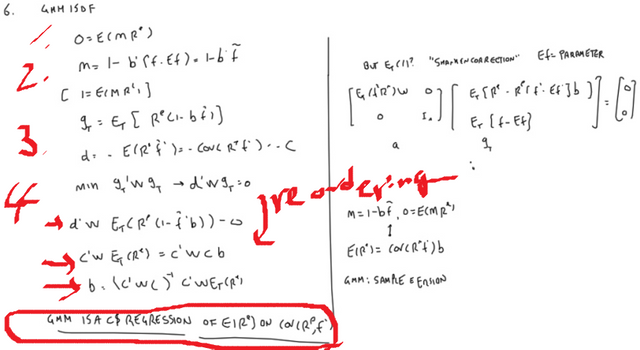 6. GMM ISDF
1.
0 = E(MRᵉ)
2.
m = 1 - b'(f-Ef) = 1 - b'f̃
[ 1 = E(MRⁱ) ]
3.
g_T = E_T [ Rᵉ(1-bf̃) ]
d = - E(Rᵉf̃') = - COV(Rᵉf') = - C
4
min g_T'W g_T → d'W g_T = 0
→ d'W E_T(Rᵉ(1-f̃'b)) = 0
reordering
→ C'W E_T(Rᵉ) = C'WCb
→ b = (C'WC)⁻¹ C'WE_T(Rᵉ)
GMM IS A CS REGRESSION OF E(Rᵉ) ON COV(Rᵉ, f')
BUT E_T(f)? "SHANKEN CORRECTION" Ef = PARAMETER
[ E_T(f̃'Rᵉ)W 0 ] [ E_T[Rᵉ - Rᵉ(f'-Ef')b] ] = [ 0 ]
[ 0 I ] [ E_T[f-Ef] ] [ 0 ]
a g_T
:
m = 1-bf̃, 0=E(MRᵉ)
↕
E(Rᵉ) = COV(Rᵉf')b
GMM: SAMPLE VERSION